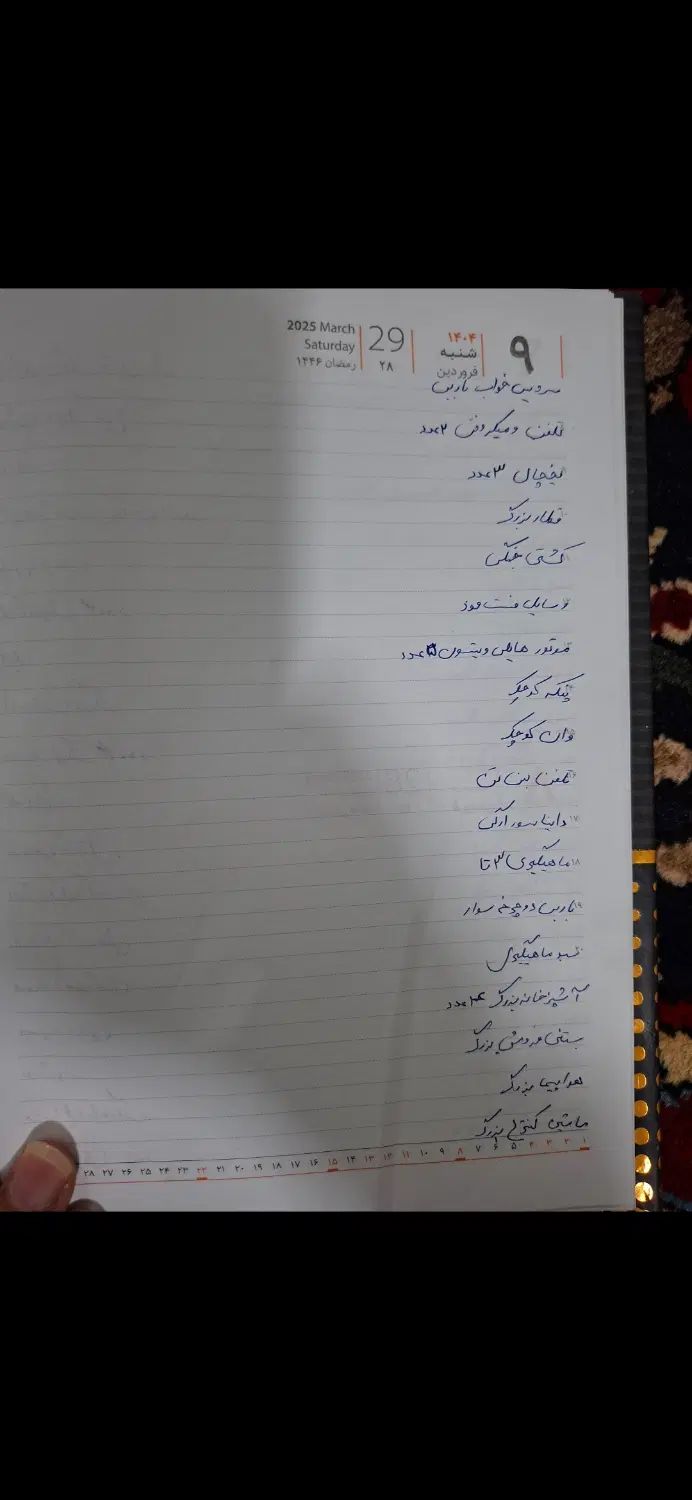 2025 March
Saturday
۱۴۴۶ رمضان
29
۲۸
۱۴۰۴
شنبه
فروردین
۹
سرویس خواب باربی
تلفن و میکروفن ۲عدد
یخچال ۳عدد
قطار بزرگ
کشتی جنگی
وسایل فست فود
موتور هایلی ویتسون ۵عدد
پنکه کوچک
وان کوچک
تلفن بن تن
دایناسور ارگی
ماهیگیری ۳تا
باربی دوچرخه سوار
سبد ماهیگیری
آشپزخانه بزرگ ۴عدد
بستنی فروش بزرگ
هواپیما بزرگ
ماشین کنترلی بزرگ
۱ ۲ ۳ ۴ ۵ ۶ ۷ ۸ ۹ ۱۰ ۱۱ ۱۲ ۱۳ ۱۴ ۱۵ ۱۶ ۱۷ ۱۸ ۱۹ ۲۰ ۲۱ ۲۲ ۲۳ ۲۴ ۲۵ ۲۶ ۲۷ ۲۸